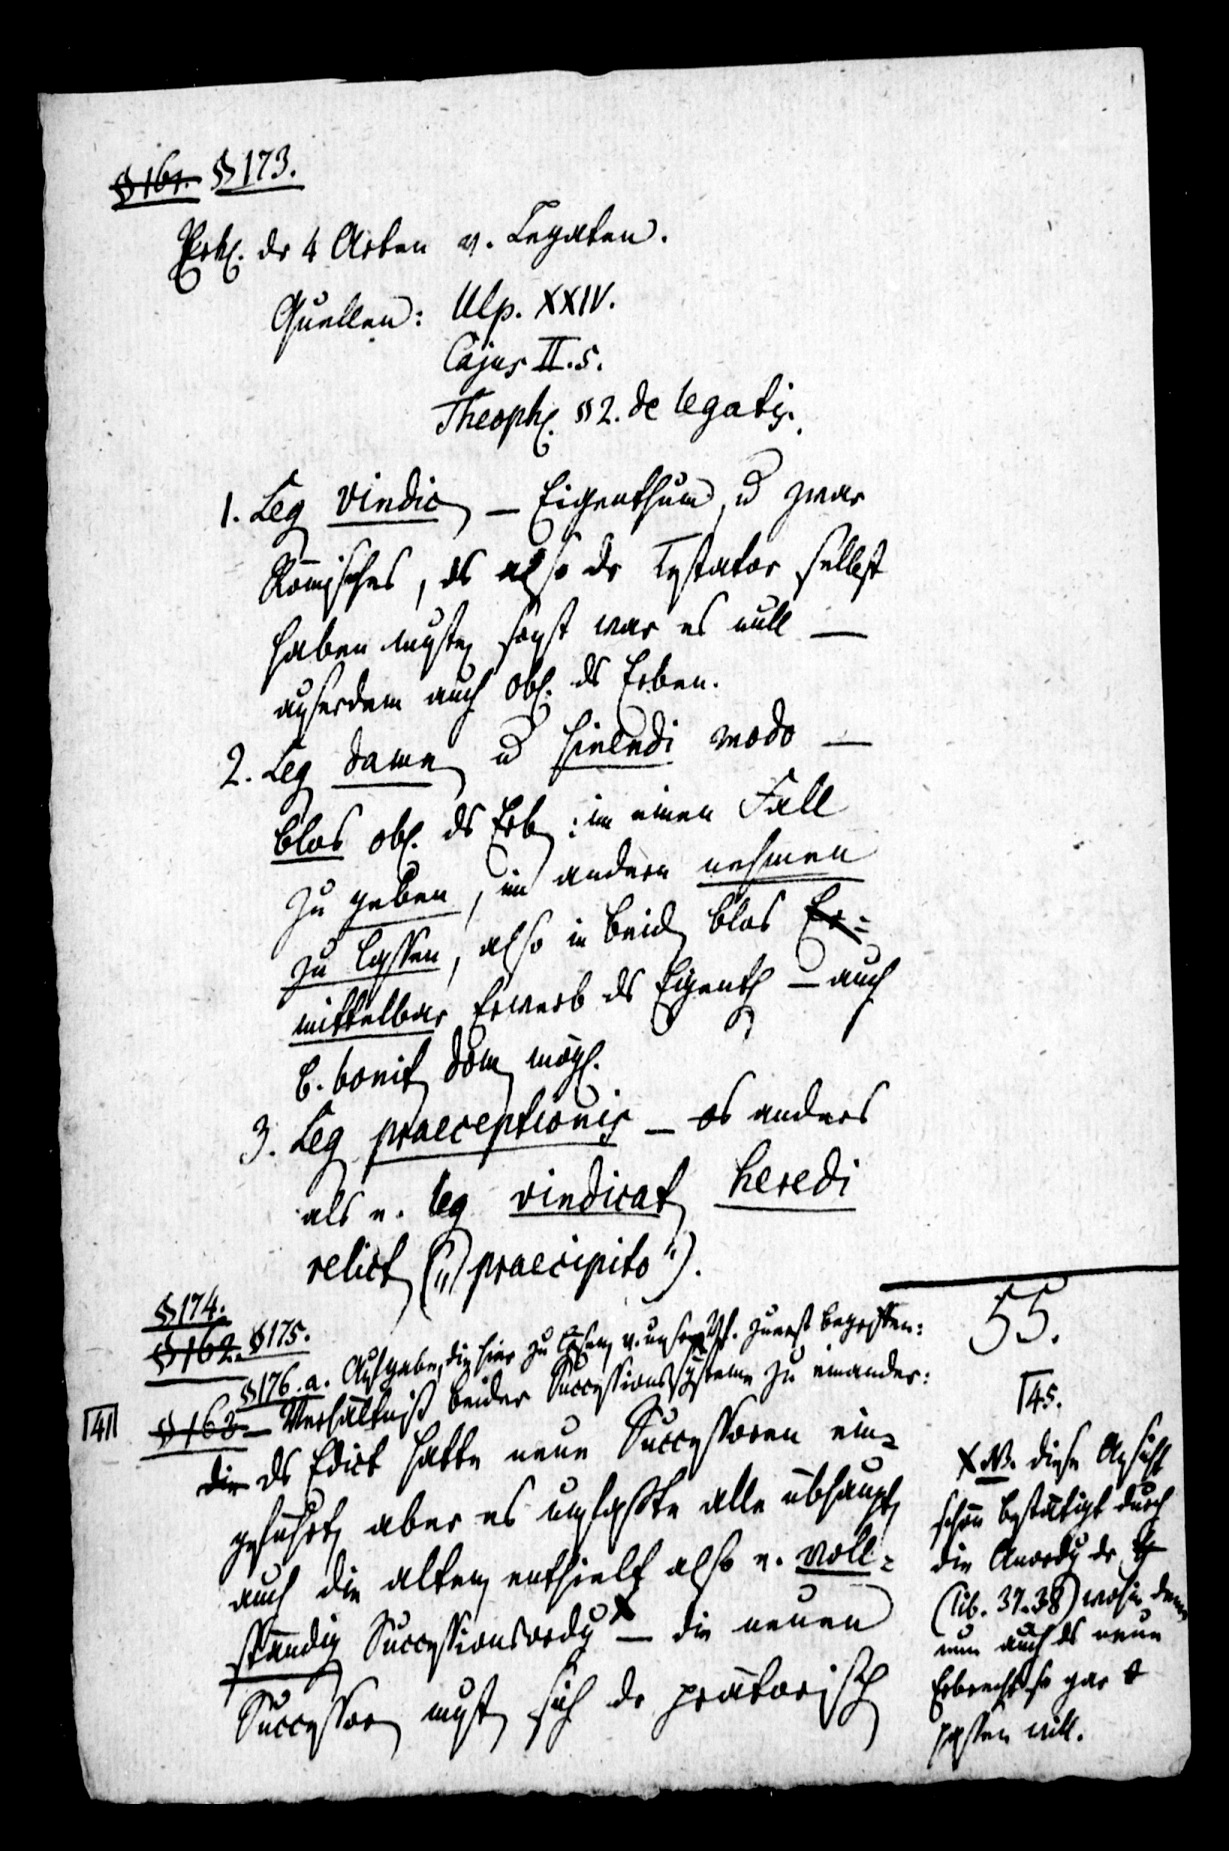 § 161. § 173.
Erkl. der 4 Arten v. Legaten.
Quellen: Ulp. XXIV.
Cajus II. 5.
Theoph. § 2. de legatis.
1. Leg vindic – Eigenthum, u zwar
Römisches, das also der Testator selbst
haben mußte, sonst war es null —
außerdem auch obl. des Erben.
2. Leg damn u sinendi modo —
blos obl. des Erb: im einen Fall
zu geben, im andern nehmen
zu lassen, also in beid blos Er=
mittelbar Erwerb des Eigenth – auch
b. bonit dom mögl.
3. Leg praeceptionis – anders
als e. leg vindicat heredi
relict („praecipito“).
55.
§ 174.
§ 162. § 175.
§ 176. a. Aufgabe, die hier zu lösen, zuerst begriffen:
§ 163 – Verhältniß beider Successionssysteme zu einander:
41
45.
die das Edict hatte neue Successoren ein=
geführt, aber es umfaßte alle überhaupt
auch die alten, enthielt also e. voll=
ständig Successionsordg X – die neuen
Successor mußt sich der prätorisch
X NB. diese Ansicht
schön bestätigt durch
die Anordg der
(lib. 37. 38) wohin denn
nun auch das neue
Erbrecht so gar
passen will.